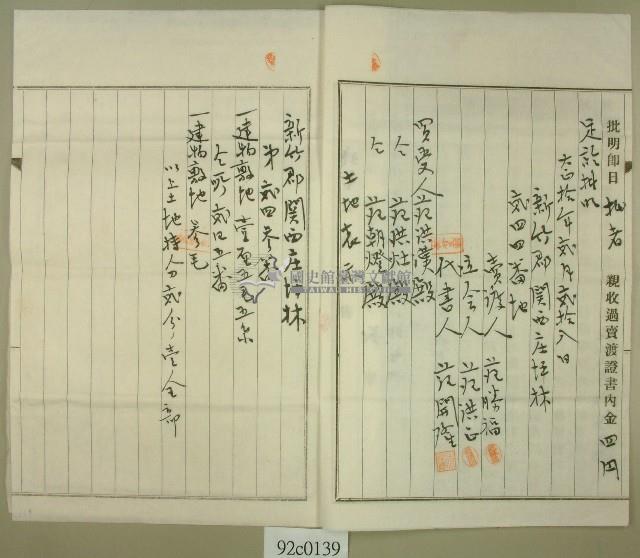 批明即日 批者 親收過賣渡證書內金四円
足訖批明
大正拾年貳月貳拾八日
新竹郡關西庄坪林
貳四四番地
賣渡人 范勝福
立會人 范洪正
代書人 范開隆
買受人 范洪漢殿
仝 范洪灶殿
仝 范朝燈殿
土地表示
新竹郡關西庄坪林
第貳四參
一建物敷地 壹厘五毛五糸
仝所 貳四五番
一建物敷地 參毛
以上土地持分貳分ノ壹全部
國史館臺灣文獻館
TAIWAN HISTORICA
92c0139